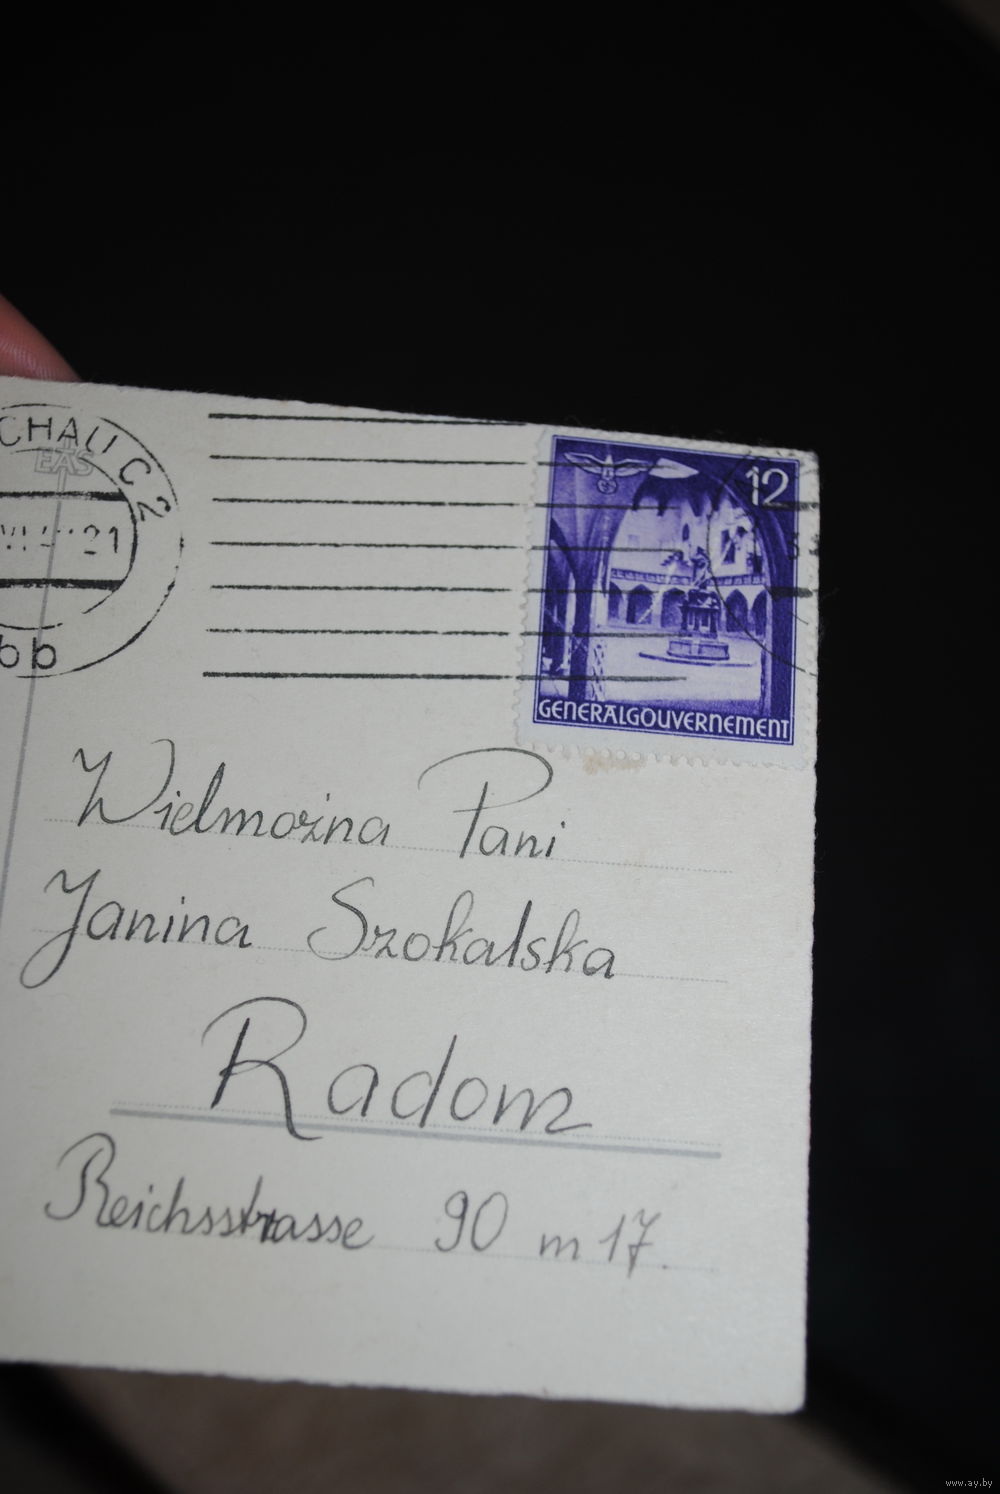 CHAU C 2
EAS
VI 21
bb
12
GENERALGOUVERNEMENT
Wielmożna Pani
Janina Szokalska
Radom
Reichsstrasse 90 m 17.
www.ay.by